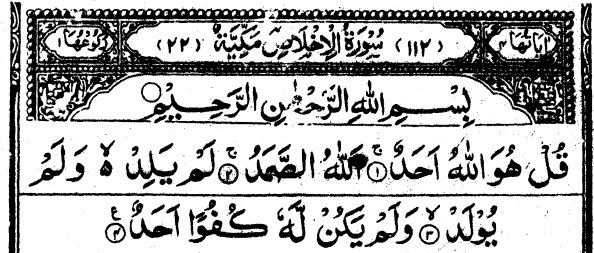 اٰيَاتُهَا ٤ (١١٢) سُوْرَةُ الْاِخْلَاصِ مَكِّيَّةٌ (٢٢) رُكُوْعُهَا ١
بِسْمِ اللهِ الرَّحْمٰنِ الرَّحِيْمِ
قُلْ هُوَ اللهُ اَحَدٌ ۚ﴿١﴾ اَللهُ الصَّمَدُ ۚ﴿٢﴾ لَمْ يَلِدْ ۙ وَلَمْ
يُوْلَدْ ۙ﴿٣﴾ وَلَمْ يَكُنْ لَّهٗ كُفُوًا اَحَدٌ ﴿٤﴾ ع